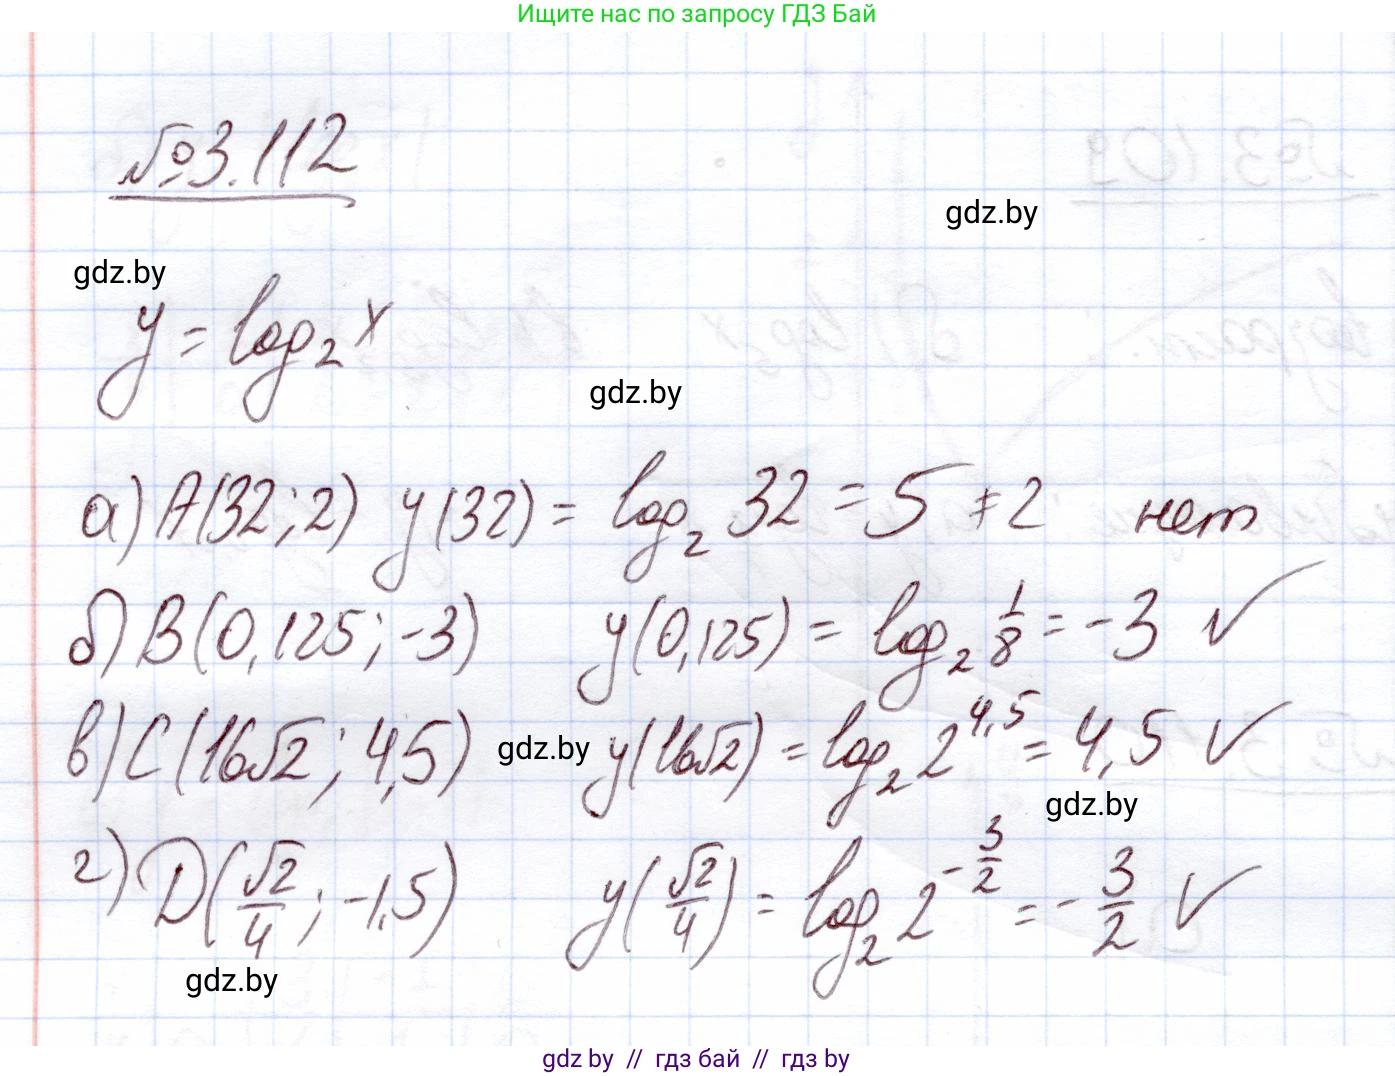 Ищите нас по запросу ГДЗ Бай
№3.112
gdz.by
gdz.by
y = log₂ x
gdz.by
а) A(32; 2) y(32) = log₂ 32 = 5 ≠ 2 нет
б) B(0,125; -3) y(0,125) = log₂ 1/8 = -3 ✓
в) C(16√2; 4,5) gdz.by y(16√2) = log₂ 2^4,5 = 4,5 ✓
gdz.by
г) D(√2/4; -1,5) y(√2/4) = log₂ 2^-3/2 = -3/2 ✓
gdz.by
gdz by // гдз бай // гдз by